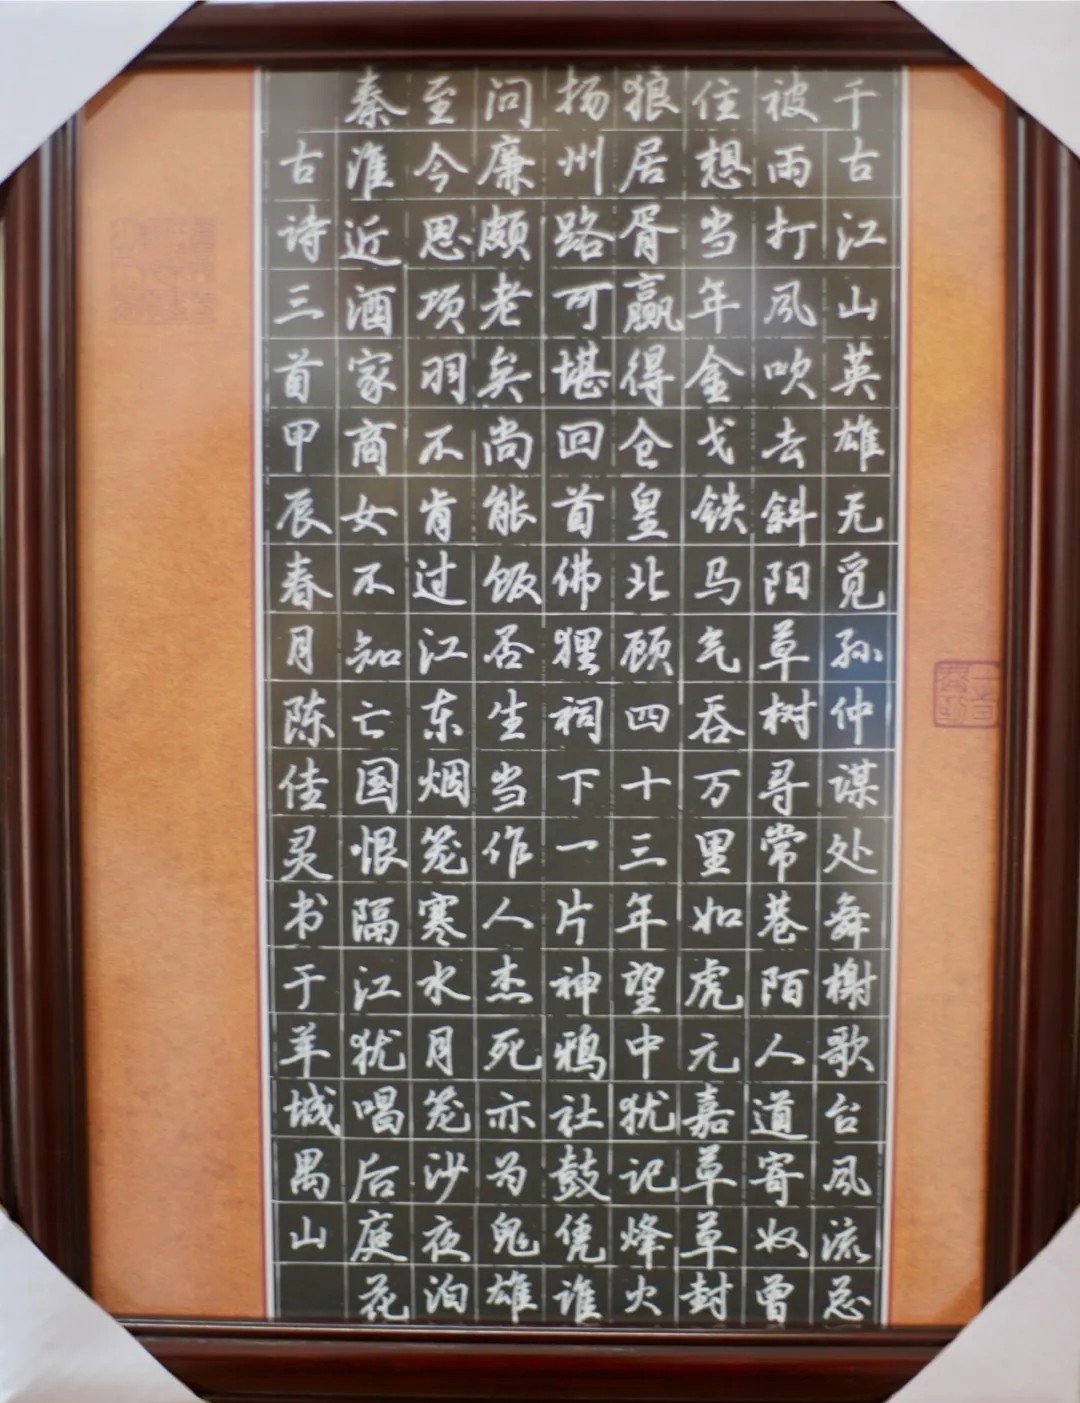 千古江山英雄无觅孙仲谋处舞榭歌台风流总
被雨打风吹去斜阳草树寻常巷陌人道寄奴曾
住想当年金戈铁马气吞万里如虎元嘉草草封
狼居胥赢得仓皇北顾四十三年望中犹记烽火
扬州路可堪回首佛狸祠下一片神鸦社鼓凭谁
问廉颇老矣尚能饭否生当作人杰死亦为鬼雄
至今思项羽不肯过江东烟笼寒水月笼沙夜泊
秦淮近酒家商女不知亡国恨隔江犹唱后庭花
古诗三首甲辰春月陈佳灵书于羊城禺山